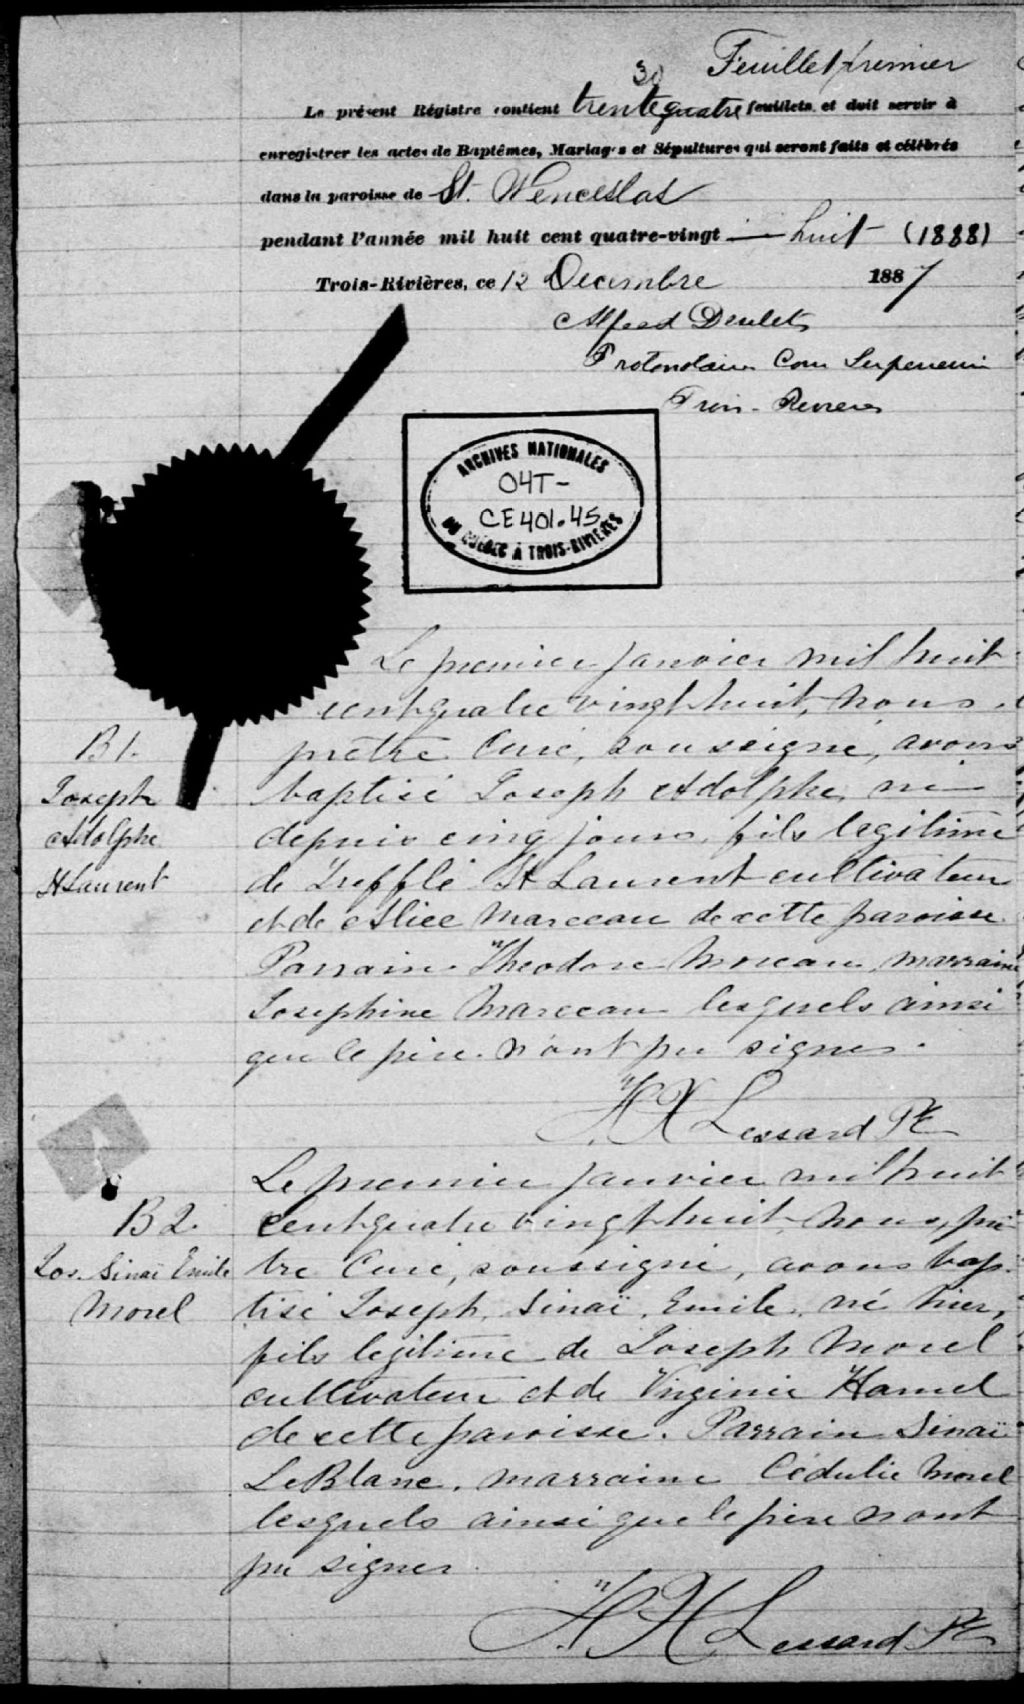 30 Feuillet premier
Le présent Régistre contient trentequatre feuillets et doit servir à
enregistrer les actes de Baptêmes, Mariages et Sépultures qui seront faits et célébrés
dans la paroisse de St. Wenceslas
pendant l'année mil huit cent quatre-vingt — huit (1888)
Trois-Rivières, ce 12 Decembre 1887
Alfred Desilets
Protonotaire Cour Superieure
Trois-Rivieres
ARCHIVES NATIONALES
04T-
CE401.45
DU QUÉBEC À TROIS-RIVIÈRES
Le premier janvier mil huit
cent quatre vingt huit, nous
B1. prêtre Curé, soussigné, avons
Joseph baptisé Joseph Adolphe, né
Adolphe depuis cinq jours, fils legitime
St Laurent de Trefflé St Laurent cultivateur
et de Alice Marceau de cette paroisse.
Parrain Theodore Moreau, marraine
Josephine Marceau lesquels ainsi
que le père n'ont pu signer.
Lessard Ptr
Le premier janvier mil huit
B2. cent quatre vingt huit, nous, prê
Jos. Sinaï Emile tre Curé, soussigné, avons bap
Morel tisé Joseph, Sinaï, Emile, né hier,
fils legitime de Joseph Morel
cultivateur et de Virginie Hamel
de cette paroisse. Parrain Sinaï
LeBlanc, marraine Cédulie Morel
lesquels ainsi que le père nont
pu signer.
Lessard Ptr